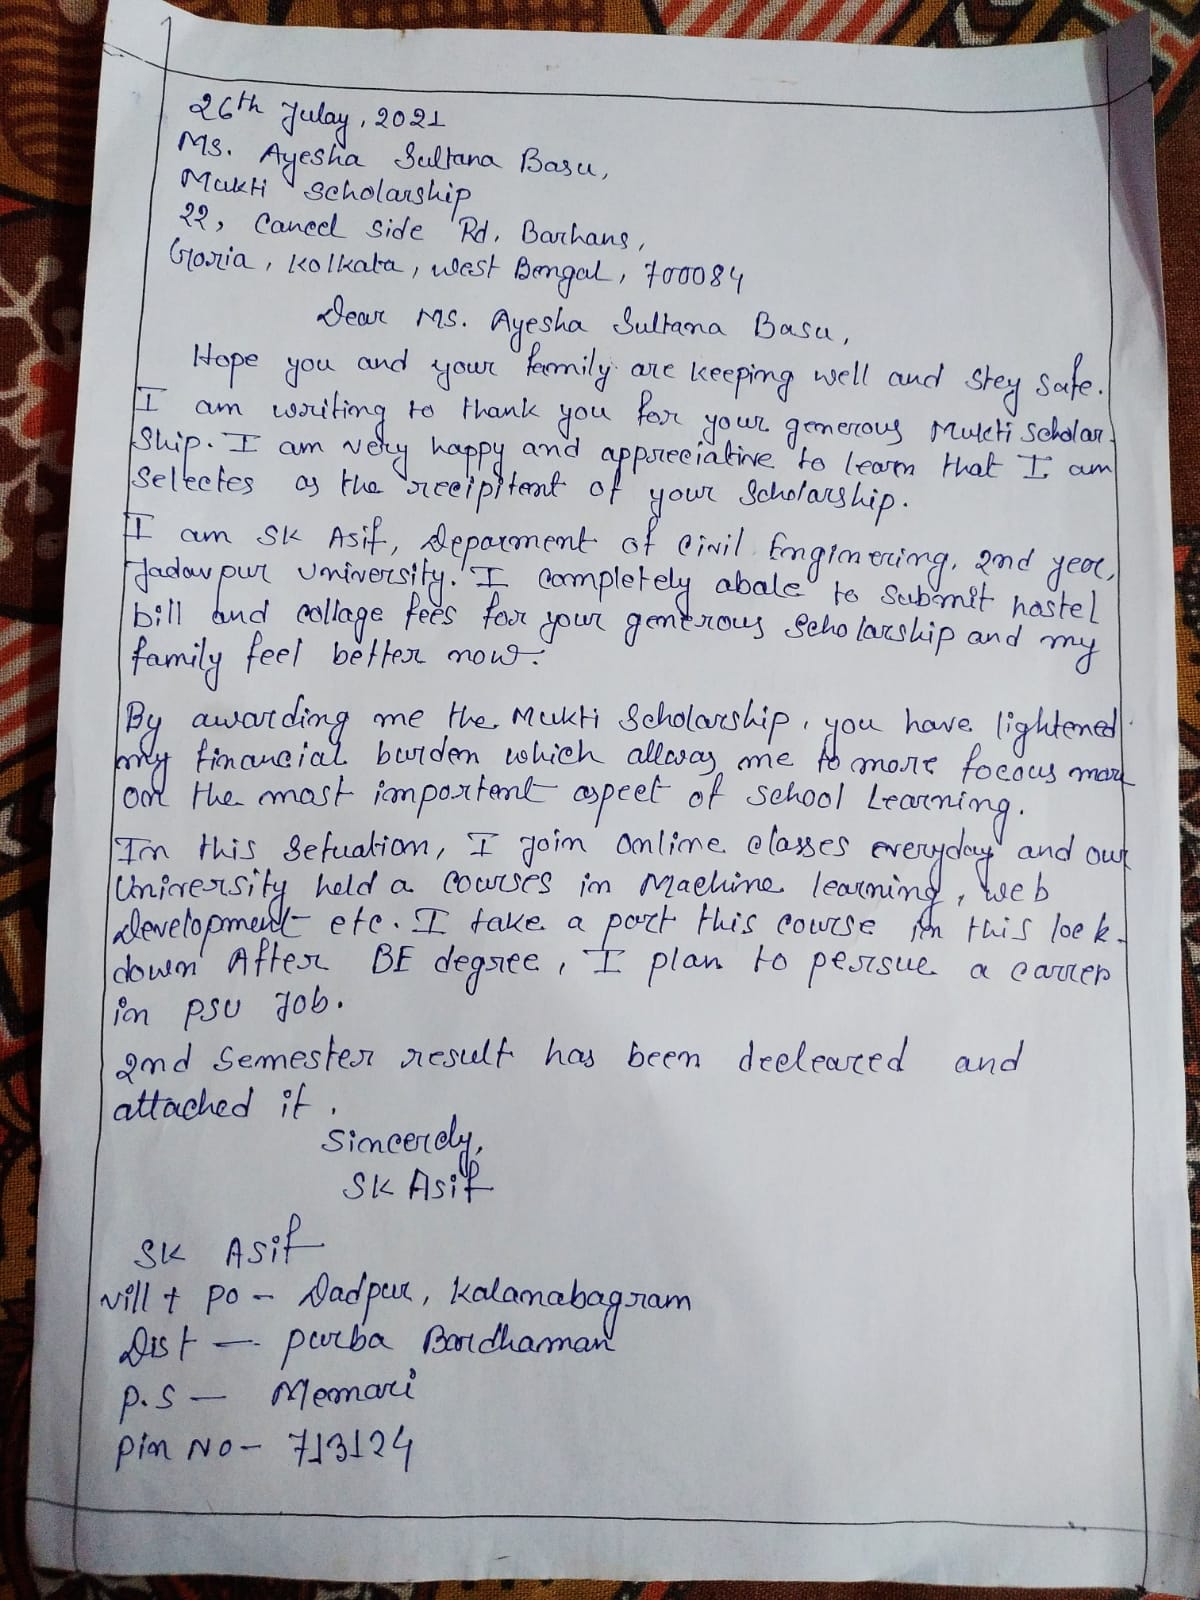 26th Julay, 2021
Ms. Ayesha Sultana Basu,
Mukti Scholarship
22, Cancel Side Rd, Barhans,
Goria, Kolkata, West Bengal, 700084
Dear Ms. Ayesha Sultana Basu,
Hope you and your family are keeping well and stey safe.
I am writing to thank you for your generous Mukti Scholar-
Ship. I am very happy and appreciative to learn that I am
Selectes as the recipitent of your Scholarship.
I am SK Asif, Deparment of Civil Enginnering, 2nd year,
Jadavpur University. I completely abale to submit hostel
bill and collage fees for your generous scholarship and my
family feel better now.
By awarding me the Mukti Scholarship, you have lightened
my financial burden which allows me to more focous more
on the most importent aspect of School Learning.
In this Setuation, I join online classes everyday and our
University held a courses in Machine learning, Web
Development etc. I take a part this course in this lock-
down After BE degree, I plan to persue a carrer
in PSU Job.
2nd Semester result has been decleared and
attached it.
Sincerely,
SK Asif
SK Asif
Vill + Po - Dadpur, Kalanabagram
Dist - Purba Bardhaman
P.S - Memari
Pin No - 713124